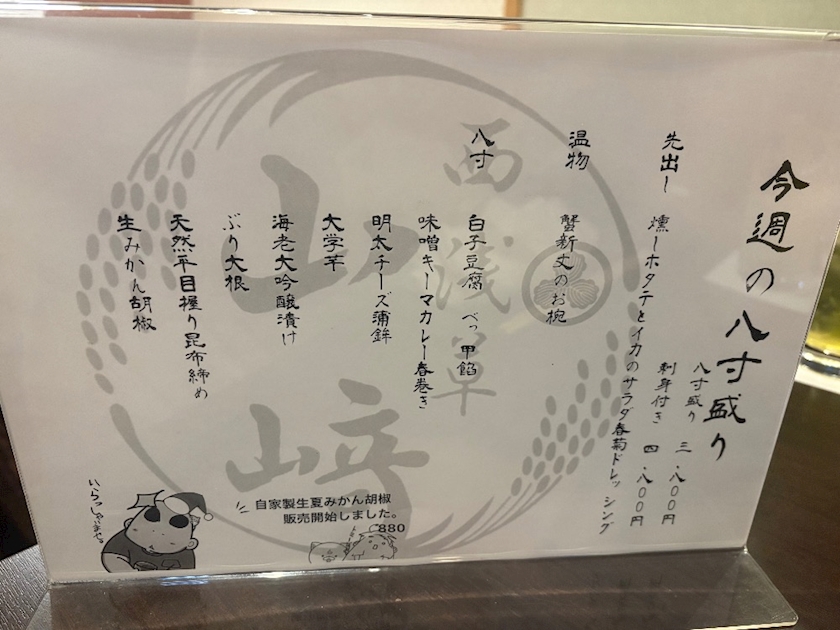 今週の八寸盛り
八寸盛り 三、八〇〇円
刺身付き 四、八〇〇円
先出し 燻しホタテとイカのサラダ春菊ドレッシング
温物 蟹新丈のお椀
八寸 白子豆腐 べっ甲餡
味噌キーマカレー春巻き
明太チーズ蒲鉾
大学芋
海老大吟醸漬け
ぶり大根
天然平目握り昆布締め
生みかん胡椒
西浅草
山﨑
自家製生夏みかん胡椒
販売開始しました。
880
いらっしゃいませ。